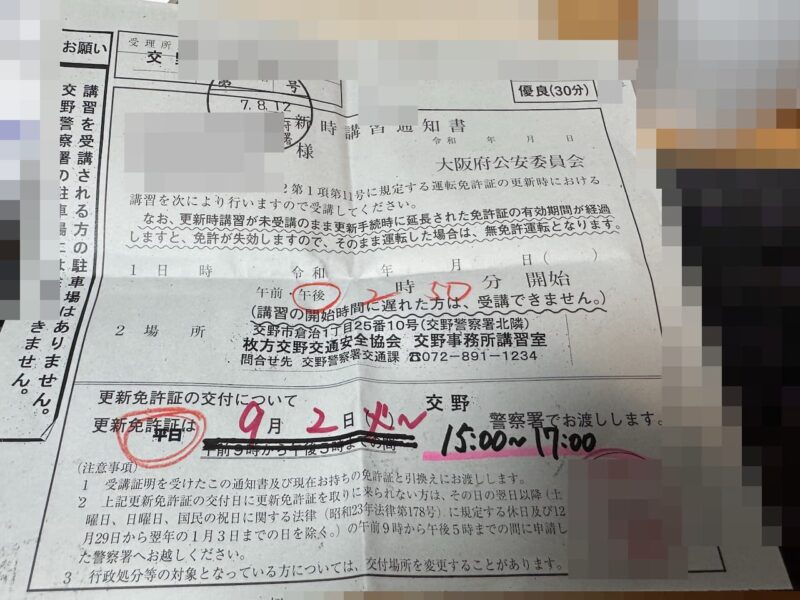 お願い
講習を受講される方の駐車場はありません。
交野警察署の駐車場には
きません。
受理所
交野
号
7.8.12
優良(30分)
新時講習通知書
令和 年 月 日
様
大阪府公安委員会
2第1項第11号に規定する運転免許証の更新時における
講習を次により行いますので受講してください。
なお、更新時講習が未受講のまま更新手続時に延長された免許証の有効期間が経過
しますと、免許が失効しますので、そのまま運転した場合は、無免許運転となります。
1 日時 令和 年 月 日( )
午前・午後 2時50分開始
(講習の開始時間に遅れた方は、受講できません。)
2 場所 交野市倉治1丁目25番10号(交野警察署北隣)
枚方交野交通安全協会 交野事務所講習室
問合せ先 交野警察署交通課 ☎072-891-1234
更新免許証の交付について
更新免許証は 平日 9月2日(火)~ 交野警察署でお渡しします。
午前9時から午後5時までの間
15:00~17:00
(注意事項)
1 受講証明を受けたこの通知書及び現在お持ちの免許証と引換えにお渡しします。
2 上記更新免許証の交付日に更新免許証を取りに来られない方は、その日の翌日以降(土
曜日、日曜日、国民の祝日に関する法律(昭和23年法律第178号)に規定する休日及び12
月29日から翌年の1月3日までの日を除く。)の午前9時から午後5時までの間に申請し
た警察署へお越しください。
3 行政処分等の対象となっている方については、交付場所を変更することがあります。